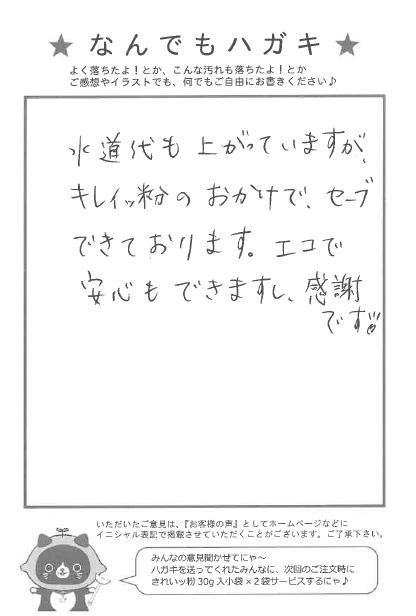 ★ なんでもハガキ ★
よく落ちたよ！とか、こんな汚れも落ちたよ！とか
ご感想やイラストでも、何でもご自由にお書きください♪
水道代も上がっていますが、
キレイッ粉のおかげで、セーブ
できております。エコで
安心もできますし、感謝
です
いただいたご意見は、『お客様の声』としてホームページなどに
イニシャル表記で掲載させていただくことがございます。ご了承下さい。
みんなの意見聞かせてにゃ～
ハガキを送ってくれたみんなに、次回のご注文時に
きれいッ粉30g入小袋×2袋サービスするにゃ♪